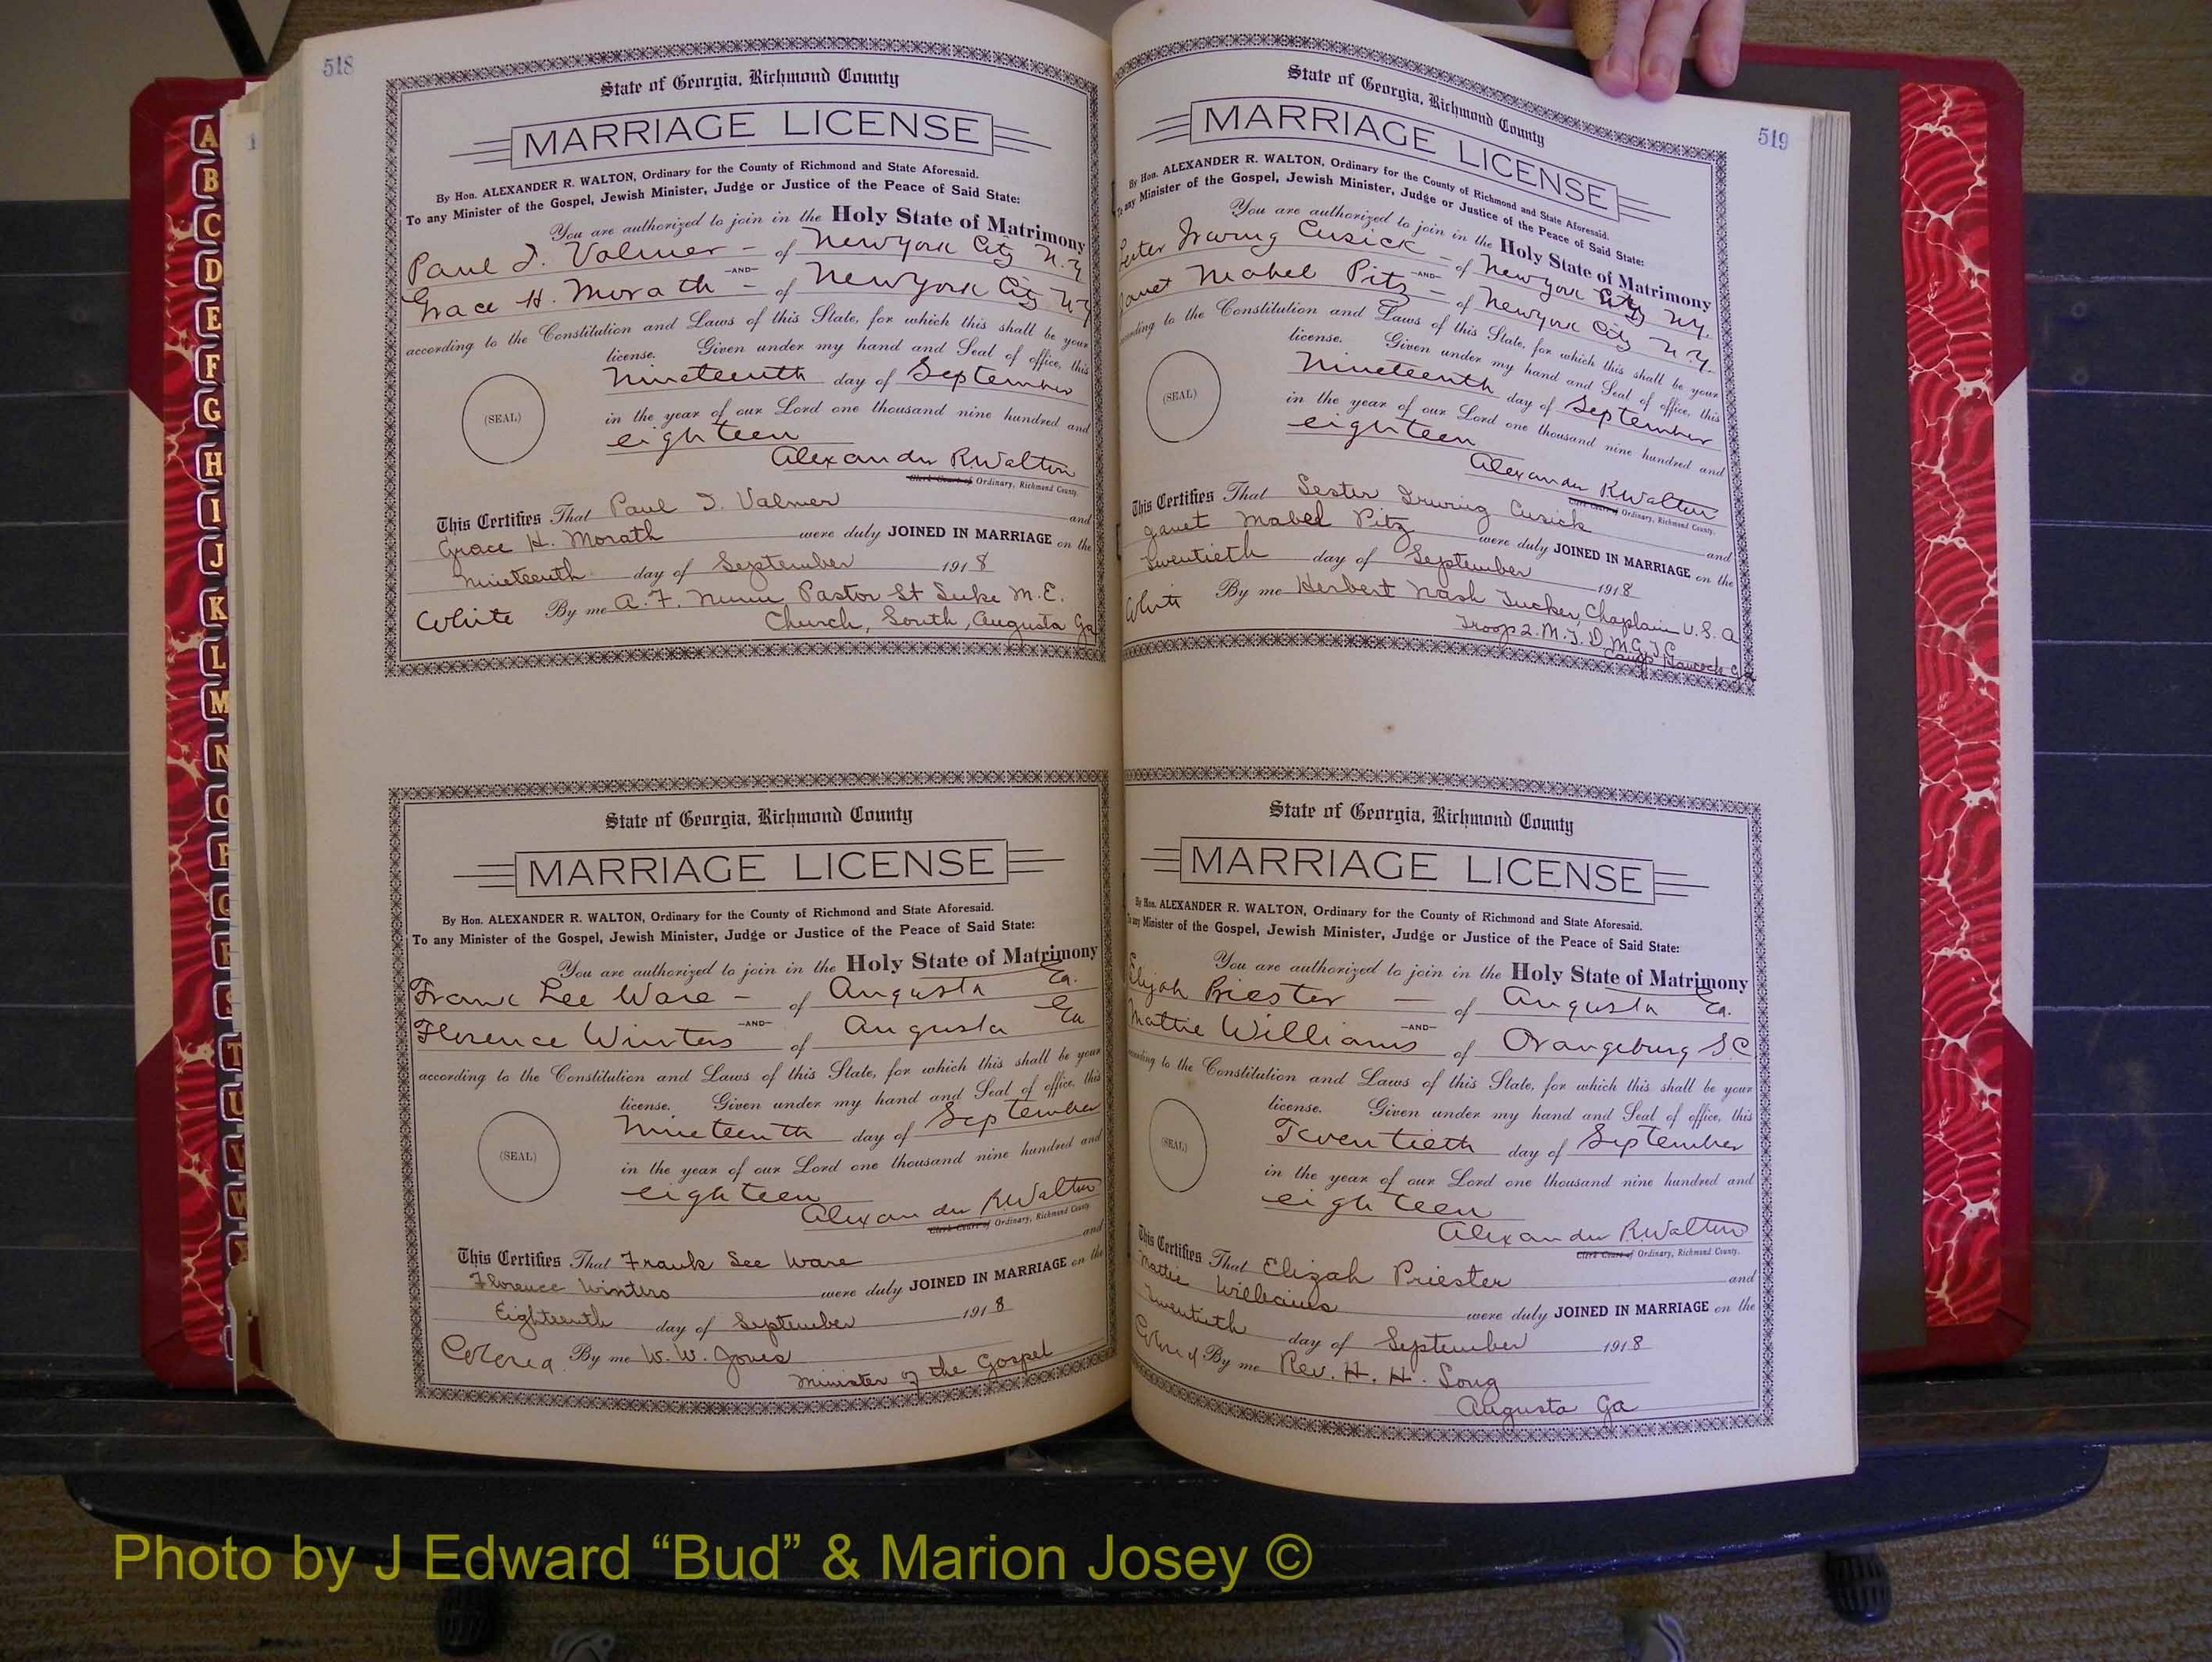 518
State of Georgia, Richmond County
MARRIAGE LICENSE
By Hon. ALEXANDER R. WALTON, Ordinary for the County of Richmond and State Aforesaid.
To any Minister of the Gospel, Jewish Minister, Judge or Justice of the Peace of Said State:
You are authorized to join in the Holy State of Matrimony
Paul J. Valmer - of New York City N.Y.
-AND-
Grace H. Morath - of New York City N.Y.
according to the Constitution and Laws of this State, for which this shall be your
license. Given under my hand and Seal of office, this
nineteenth day of September
(SEAL)
in the year of our Lord one thousand nine hundred and
eighteen
Alexander R. Walton
Clerk Court of Ordinary, Richmond County.
This Certifies That Paul J. Valmer and
Grace H. Morath were duly JOINED IN MARRIAGE on the
nineteenth day of September 1918
White By me A. F. Nunn Pastor St Luke M.E.
Church, South, Augusta Ga
State of Georgia, Richmond County
MARRIAGE LICENSE
By Hon. ALEXANDER R. WALTON, Ordinary for the County of Richmond and State Aforesaid.
To any Minister of the Gospel, Jewish Minister, Judge or Justice of the Peace of Said State:
You are authorized to join in the Holy State of Matrimony
Frank Lee Ware - of Augusta Ga.
-AND-
Florence Winters of Augusta Ga
according to the Constitution and Laws of this State, for which this shall be your
license. Given under my hand and Seal of office, this
nineteenth day of September
(SEAL)
in the year of our Lord one thousand nine hundred and
eighteen
Alexander R. Walton
Clerk Court of Ordinary, Richmond County.
This Certifies That Frank Lee Ware and
Florence Winters were duly JOINED IN MARRIAGE on the
Eighteenth day of September 1918
Colored By me W. W. Jones
Minister of the Gospel
519
State of Georgia, Richmond County
MARRIAGE LICENSE
By Hon. ALEXANDER R. WALTON, Ordinary for the County of Richmond and State Aforesaid.
To any Minister of the Gospel, Jewish Minister, Judge or Justice of the Peace of Said State:
You are authorized to join in the Holy State of Matrimony
Lester Irwing Cusick - of New York City N.Y.
-AND-
Janet Mabel Pitz - of New York City N.Y.
according to the Constitution and Laws of this State, for which this shall be your
license. Given under my hand and Seal of office, this
nineteenth day of September
(SEAL)
in the year of our Lord one thousand nine hundred and
eighteen
Alexander R. Walton
Clerk Court of Ordinary, Richmond County.
This Certifies That Lester Irwing Cusick and
Janet Mabel Pitz were duly JOINED IN MARRIAGE on the
twentieth day of September 1918
White By me Herbert Nash Tucker, Chaplain U.S.A
Troop 2. M.T.D. M.G.T.C.
Camp Hancock Ga
State of Georgia, Richmond County
MARRIAGE LICENSE
By Hon. ALEXANDER R. WALTON, Ordinary for the County of Richmond and State Aforesaid.
To any Minister of the Gospel, Jewish Minister, Judge or Justice of the Peace of Said State:
You are authorized to join in the Holy State of Matrimony
Elijah Priester - of Augusta Ga.
-AND-
Mattie Williams of Orangeburg S.C
according to the Constitution and Laws of this State, for which this shall be your
license. Given under my hand and Seal of office, this
Twentieth day of September
(SEAL)
in the year of our Lord one thousand nine hundred and
eighteen
Alexander R. Walton
Clerk Court of Ordinary, Richmond County.
This Certifies That Elizah Priester and
Mattie Williams were duly JOINED IN MARRIAGE on the
twentieth day of September 1918
Colored By me Rev. H. H. Long
Augusta Ga
A
B
C
D
E
F
G
H
I
J
K
L
M
N
O
P
Q
R
S
T
U
V
W
Photo by J Edward “Bud” & Marion Josey ©